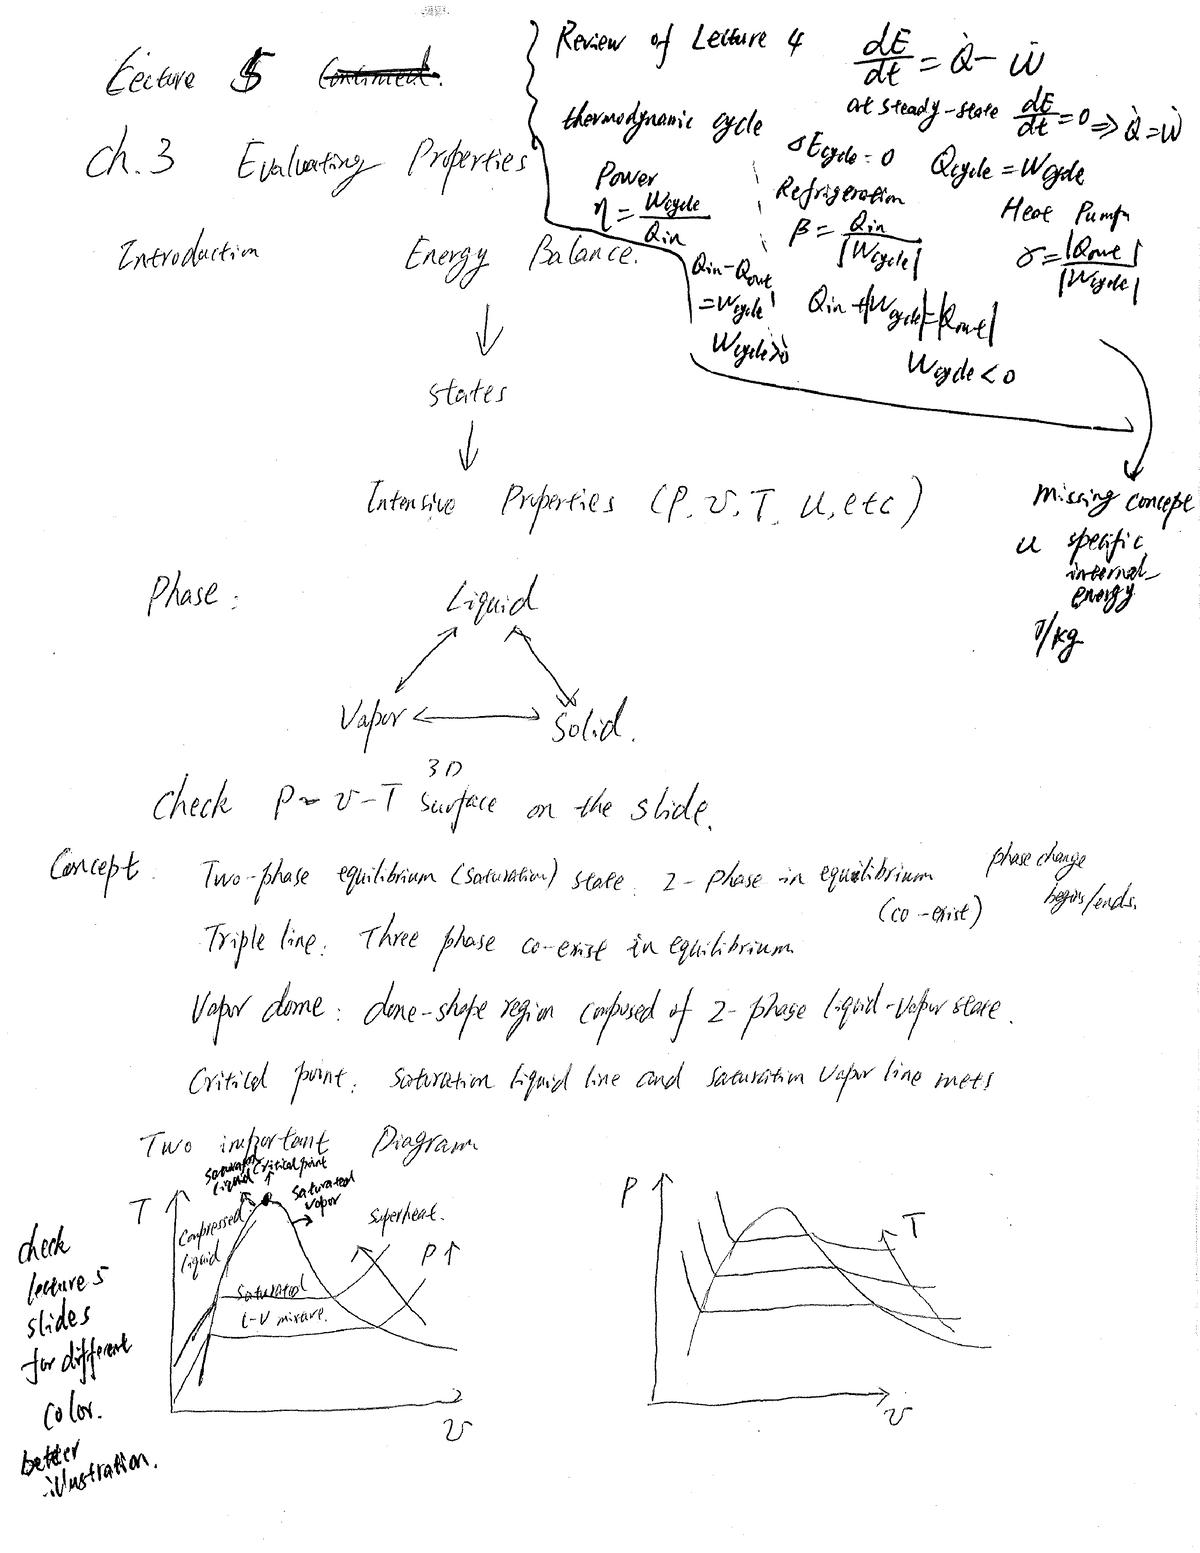 Lecture 5 Continued.
Ch.3 Evaluating Properties
Introduction Energy Balance.
states
Intensive Properties (P, v, T, u, etc)
Review of Lecture 4
dE/dt = Q̇ - Ẇ
at steady-state dE/dt = 0 => Q̇ = Ẇ
thermodynamic cycle
ΔEcycle = 0 Qcycle = Wcycle
Power
η = Wcycle/Qin
Qin - Qout
= Wcycle
Wcycle > 0
Refrigeration
β = Qin/|Wcycle|
Heat Pump
γ = |Qout|/|Wcycle|
Qin + |Wcycle| = |Qout|
Wcycle < 0
missing concept
u specific
internal
energy
J/kg
Phase:
Liquid
Vapor Solid.
Check P - v - T 3D surface on the slide.
Concept: Two-phase equilibrium (saturation) state. 2-phase in equilibrium
(co-exist)
phase change
begins/ends.
Triple line: Three phase co-exist in equilibrium
Vapor dome: dome-shape region composed of 2-phase liquid-vapor state.
Critical point: Saturation liquid line and saturation vapor line mets
Two important Diagram
T
Saturated
liquid
Critical point
Saturated
vapor
Compressed
liquid
Superheat.
P↑
Saturated
L-V mixture.
v
P
T
v
check
lecture 5
slides
for different
color.
better
illustration.